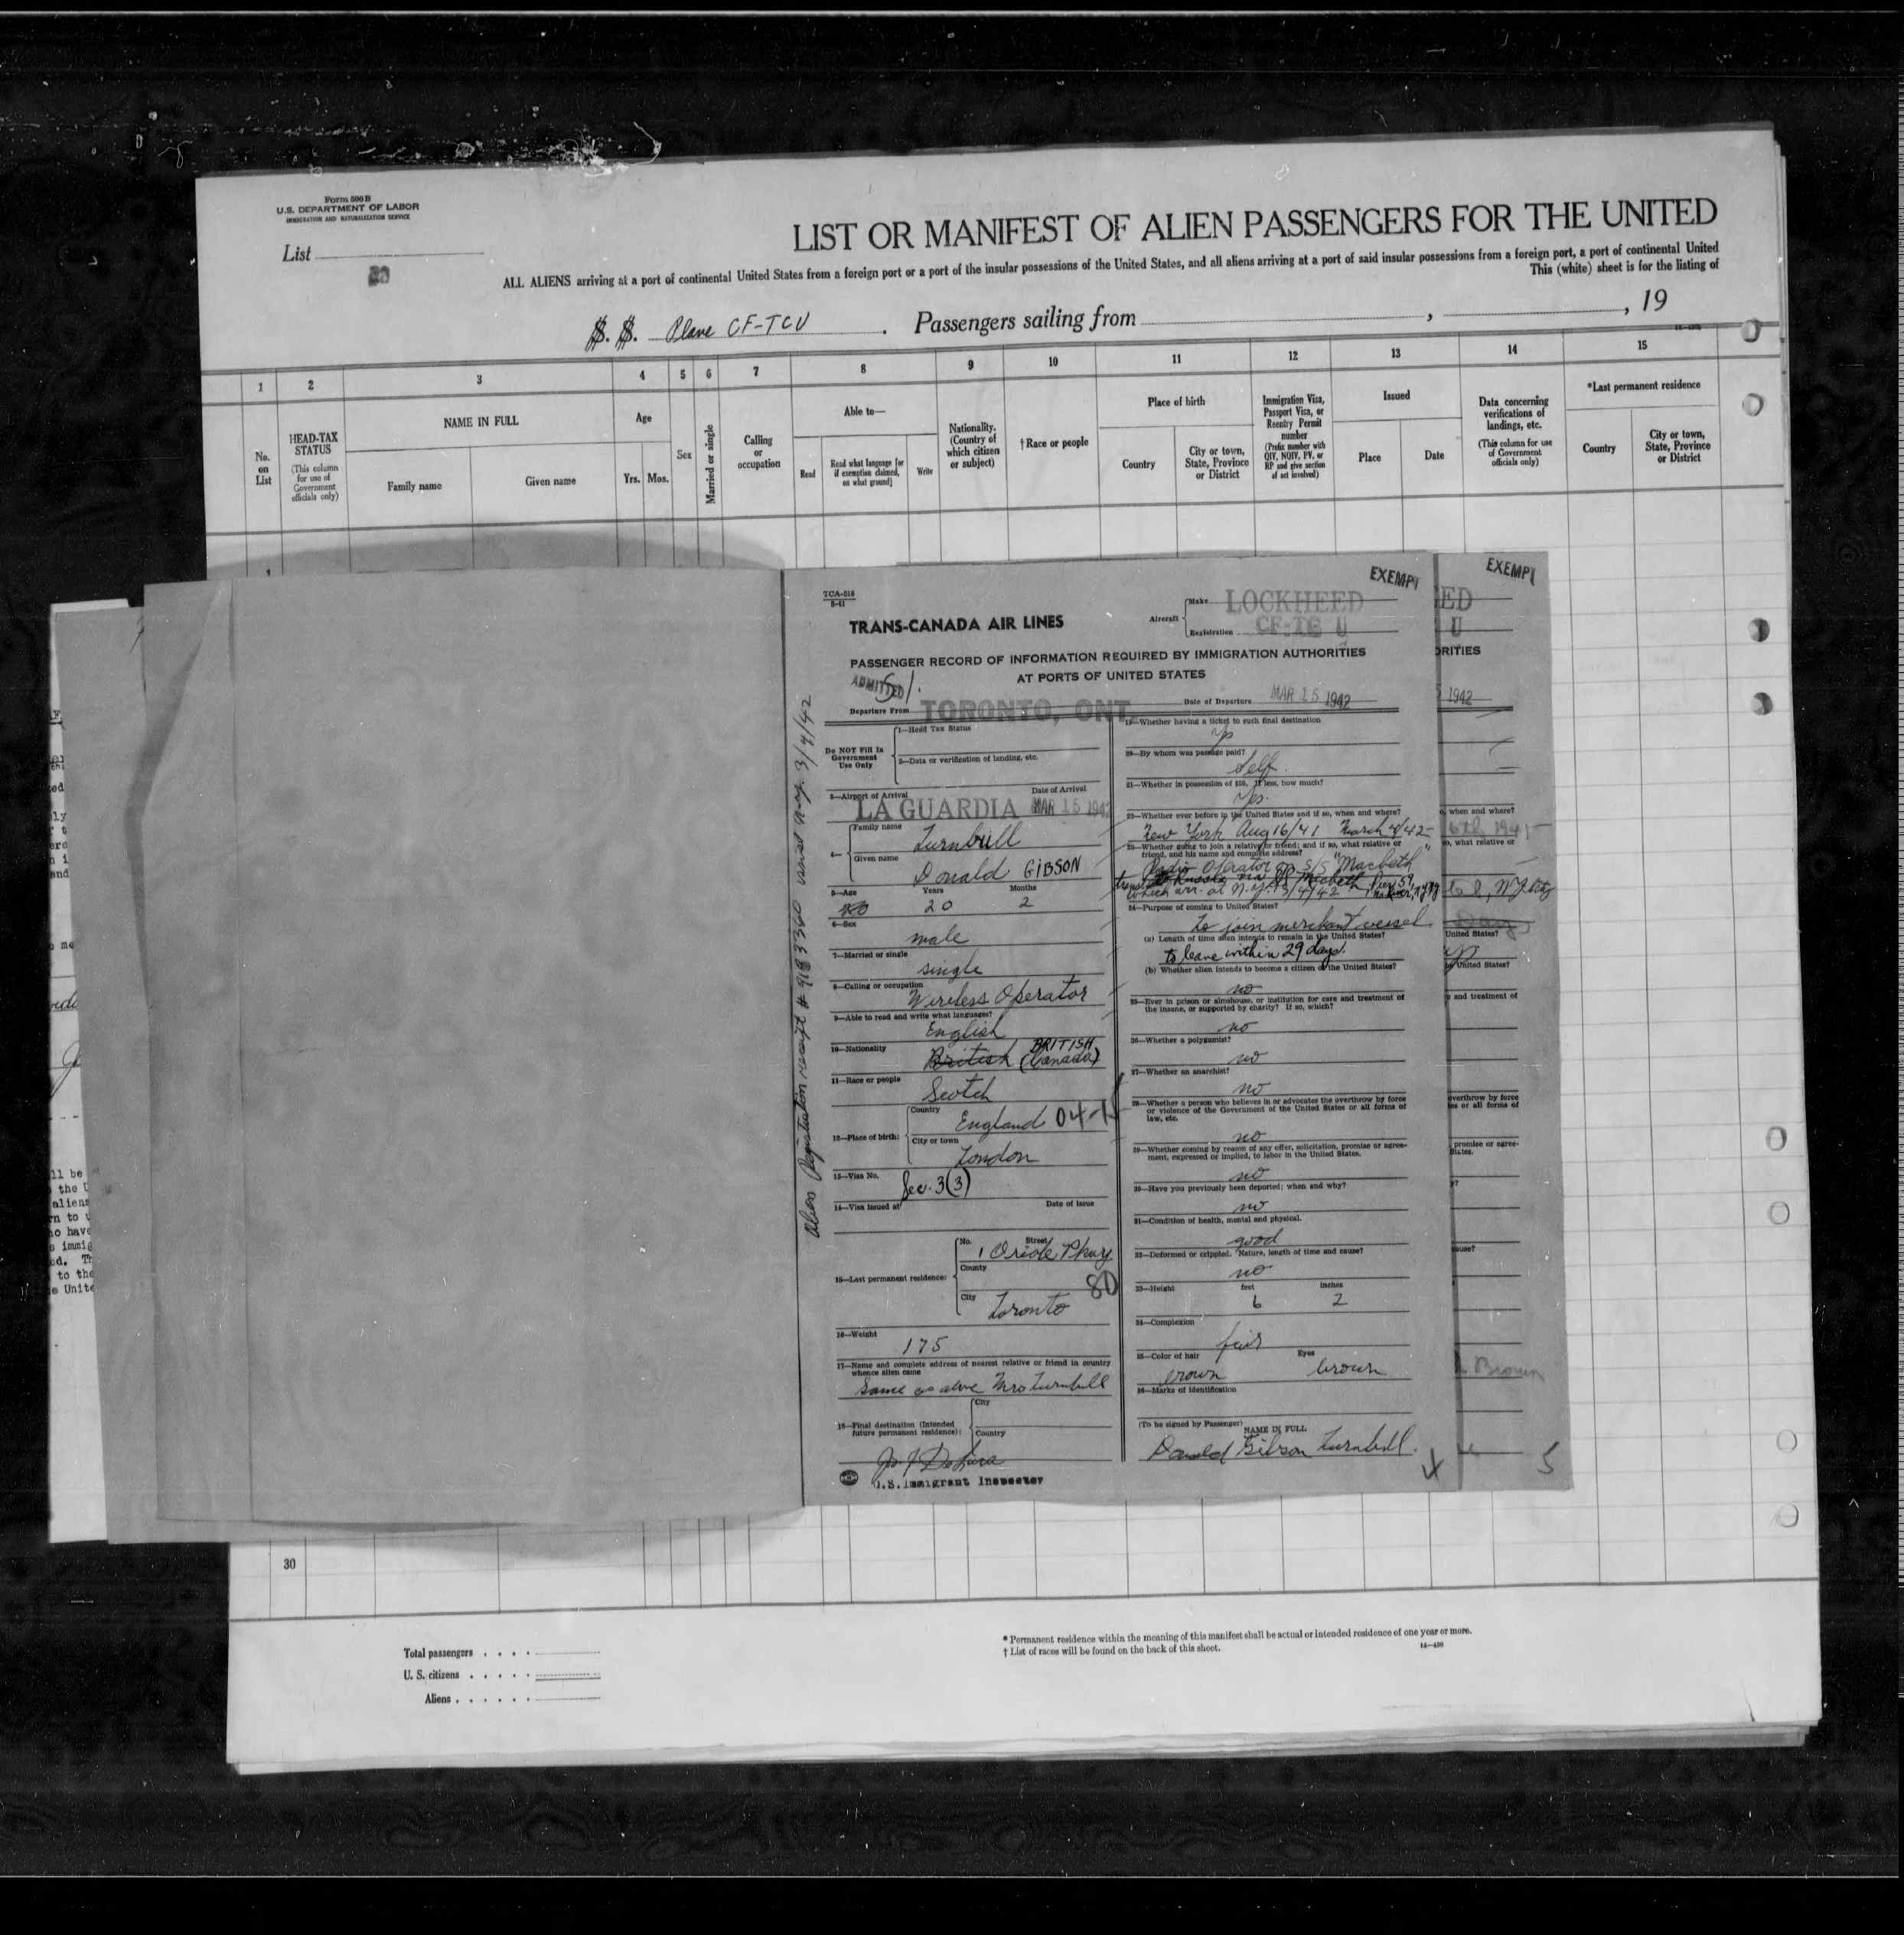 Form 500 B
U.S. DEPARTMENT OF LABOR
IMMIGRATION AND NATURALIZATION SERVICE
List
LIST OR MANIFEST OF ALIEN PASSENGERS FOR THE UNITED
ALL ALIENS arriving at a port of continental United States from a foreign port or a port of the insular possessions of the United States, and all aliens arriving at a port of said insular possessions from a foreign port, a port of continental United
This (white) sheet is for the listing of
S. S. Plane CF-TCU . Passengers sailing from , , 19
1 2 3 4 5 6 7 8 9 10 11 12 13 14 15
No. on List
HEAD-TAX STATUS
(This column for use of Government officials only)
NAME IN FULL
Family name
Given name
Age
Yrs. Mos.
Sex
Married or single
Calling or occupation
Able to—
Read
Read what language [or if exemption claimed, on what ground]
Write
Nationality. (Country of which citizen or subject)
†Race or people
Place of birth
Country
City or town, State, Province or District
Immigration Visa, Passport Visa, or Reentry Permit number
(Prefix number with QIV, NQIV, PV, or RP and give section of act involved)
Issued
Place
Date
Data concerning verifications of landings, etc.
(This column for use of Government officials only)
*Last permanent residence
Country
City or town, State, Province or District
1
TCA-518
5-41
TRANS-CANADA AIR LINES
EXEMPT
Aircraft
Make LOCKHEED
Registration CF-TC U
PASSENGER RECORD OF INFORMATION REQUIRED BY IMMIGRATION AUTHORITIES
AT PORTS OF UNITED STATES
ADMITTED
Departure From TORONTO, ONT.
Date of Departure MAR 15 1942
Do NOT Fill In Government Use Only
1—Head Tax Status
2—Data or verification of landing, etc.
3—Airport of Arrival LA GUARDIA
Date of Arrival MAR 15 1942
4— Family name Turnbull
Given name Donald GIBSON
5—Age Years 20 Months 2
6—Sex male
7—Married or single single
8—Calling or occupation Wireless Operator
9—Able to read and write what languages? English
10—Nationality British BRITISH (Canada)
11—Race or people Scotch
12—Place of birth: Country England 04-1
City or town London
13—Visa No. Sec. 3(3)
14—Visa Issued at
Date of Issue
15—Last permanent residence: No. Street 1 Oriole Pkwy
County 80
City Toronto
16—Weight 175
17—Name and complete address of nearest relative or friend in country whence alien came
Same as above Mrs Turnbull
18—Final destination (Intended future permanent residence): City
Country
U.S. Immigrant Inspector
Alien Registration receipt #
19—Whether having a ticket to such final destination
yes
20—By whom was passage paid?
Self.
21—Whether in possession of $50, if less, how much?
yes.
22—Whether ever before in the United States and if so, when and where?
New York Aug 16/41 March 4/42
23—Whether going to join a relative or friend; and if so, what relative or friend, and his name and complete address?
Radio Operator on S/S "Macbeth"
which arr. at N.Y. 3/4/42
24—Purpose of coming to United States?
to join merchant vessel
(a) Length of time alien intends to remain in the United States?
to leave within 29 days.
(b) Whether alien intends to become a citizen of the United States?
no
25—Ever in prison or almshouse, or institution for care and treatment of the insane, or supported by charity? If so, which?
no
26—Whether a polygamist?
no
27—Whether an anarchist?
no
28—Whether a person who believes in or advocates the overthrow by force or violence of the Government of the United States or all forms of law, etc.
no
29—Whether coming by reason of any offer, solicitation, promise or agreement, expressed or implied, to labor in the United States.
no
30—Have you previously been deported; when and why?
no
31—Condition of health, mental and physical.
good
32—Deformed or crippled. Nature, length of time and cause?
no
33—Height feet 6 inches 2
34—Complexion fair
35—Color of hair brown Eyes brown
36—Marks of identification
(To be signed by Passenger) NAME IN FULL
Donald Gibson Turnbull.
EXEMPT
ED
U
ORITIES
1942
, when and where?
so, what relative or
United States?
United States?
and treatment of
overthrow by force
es or all forms of
promise or agree-
States.
cause?
Brown
30
Total passengers
U. S. citizens
Aliens
* Permanent residence within the meaning of this manifest shall be actual or intended residence of one year or more.
† List of races will be found on the back of this sheet.